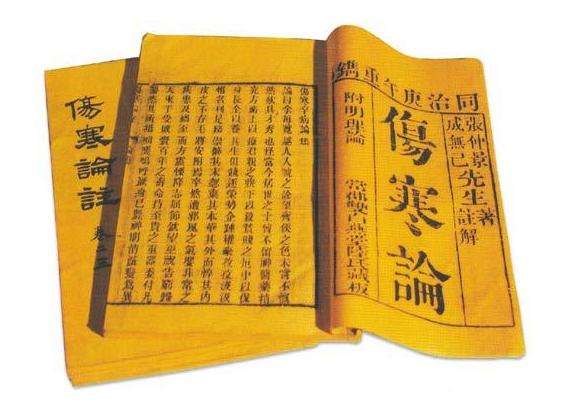 同治庚午重鐫
張仲景先生著
成無已註解
傷寒論
附明理論 常郡雙白燕堂陸氏藏板
傷寒卒病論集
論曰余每覽越人入虢之診望齊侯之色未嘗不慨
然歎其才秀也怪當今居世之士曾不留神醫藥精究
方術上以療君親之疾下以救貧賤之厄中以保
身長全以養其生但競逐榮勢企踵權豪孜孜汲汲
惟名利是務崇飾其末忽棄其本華其外而悴其內
皮之不存毛將安附焉卒然遭邪風之氣嬰非常之
疾患及禍至而方震慄降志屈節欽望巫祝告窮歸
天束手受敗賚百年之壽命持至貴之重器委付凡
醫恣其所措咄嗟嗚呼厥身已斃神明消滅變為異
傷寒論註 卷三